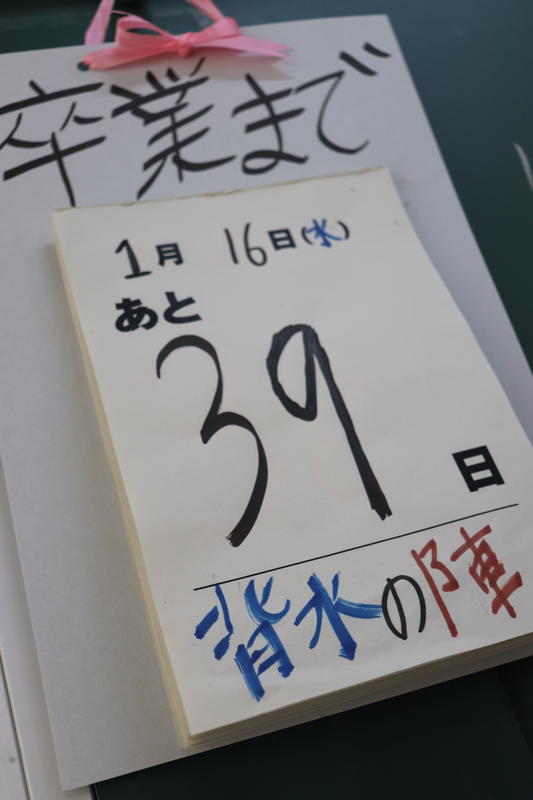 卒業まで
1月 16日(水)
あと
39
日
背水の陣